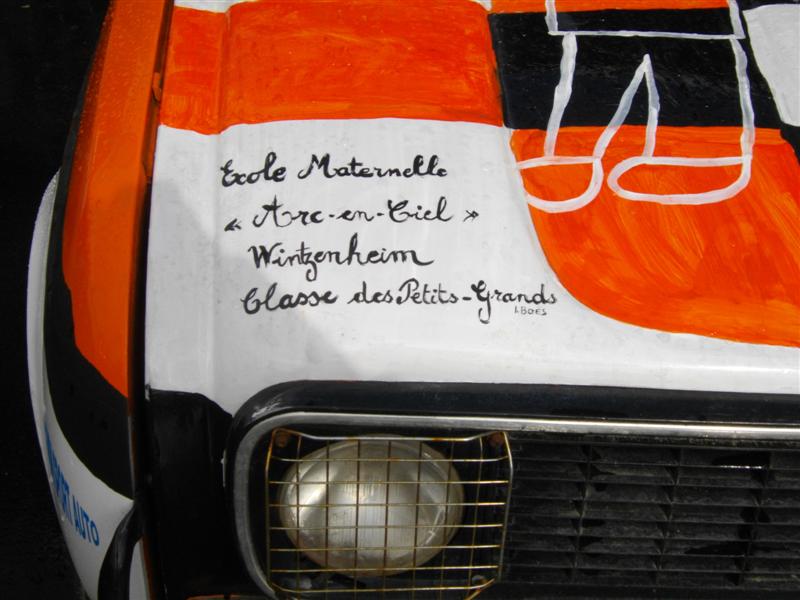 Ecole Maternelle
« Arc-en-Ciel »
Wintzenheim
Classe des Petits-Grands
I.BOES
AUTO